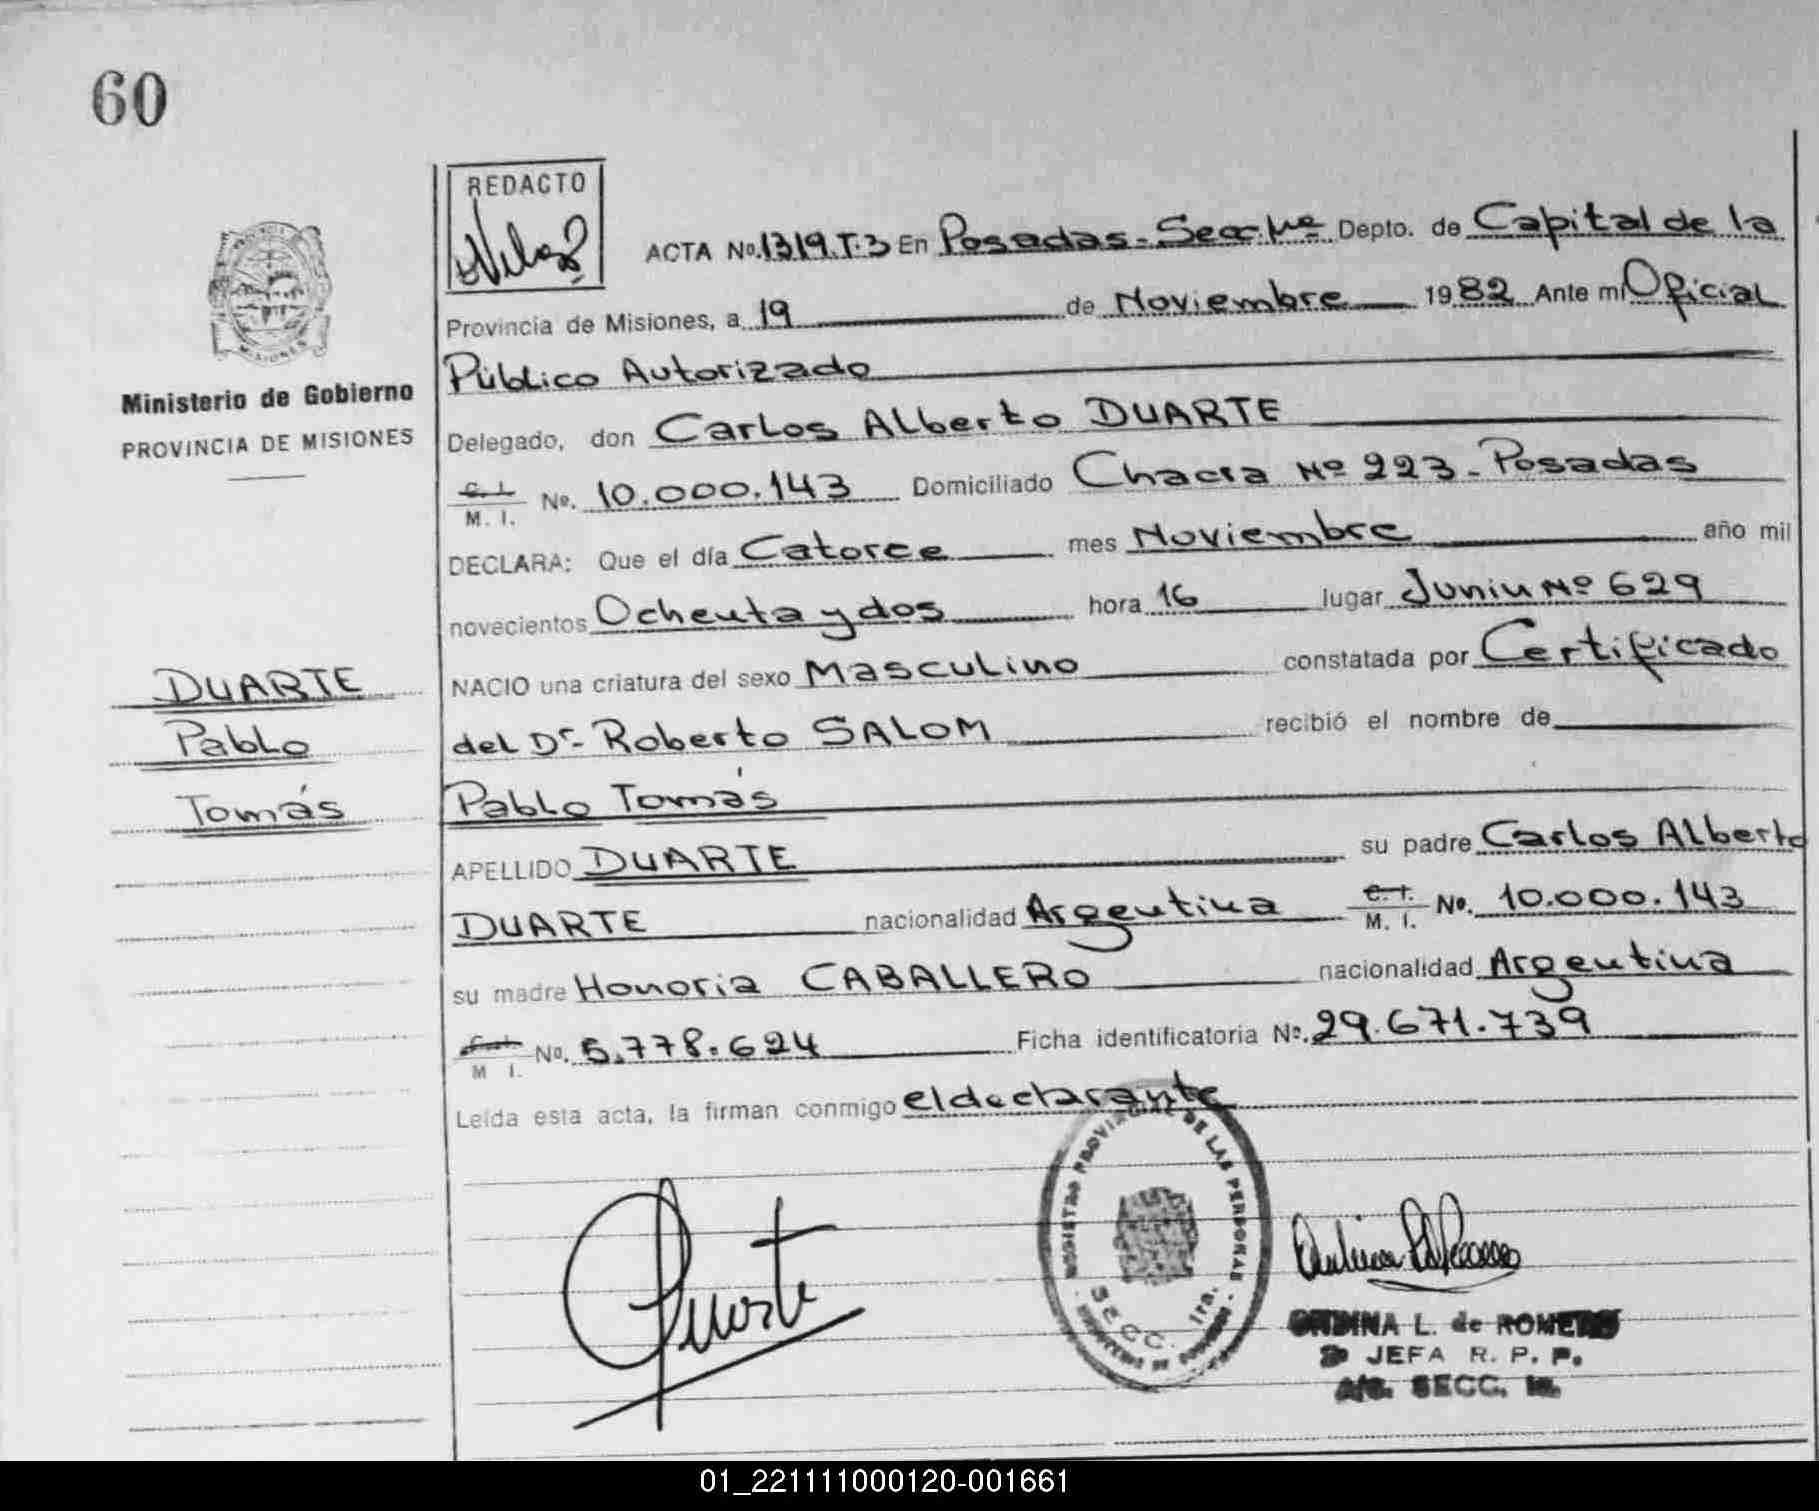 60
REDACTO
ACTA No. 1319.T.3 En Posadas - Secc. 1ª Depto. de Capital de la
Provincia de Misiones, a 19 de Noviembre 1982 Ante mi Oficial
Público Autorizado
MISIONES
Ministerio de Gobierno
PROVINCIA DE MISIONES
Delegado, don Carlos Alberto DUARTE
C. I. M. I. No. 10.000.143 Domiciliado Chacra Nº 223 - Posadas
DECLARA: Que el día Catorce mes Noviembre año mil
novecientos Ochenta y dos hora 16 lugar Junin Nº 629
NACIO una criatura del sexo Masculino constatada por Certificado
del Dr. Roberto SALOM recibió el nombre de
Pablo Tomás
DUARTE
Pablo
Tomás
APELLIDO DUARTE su padre Carlos Alberto
DUARTE nacionalidad Argentina C. I. M. I. No. 10.000.143
su madre Honoria CABALLERO nacionalidad Argentina
M I. No. 5.778.624 Ficha identificatoria Nº. 29.671.739
Leída esta acta, la firman conmigo el declarante
REGISTRO PROVINCIAL DE LAS PERSONAS
SECC. 1ra.
Duarte
L. de ROMERO
JEFA R. P. P.
A/C. SECC.
01_221111000120-001661